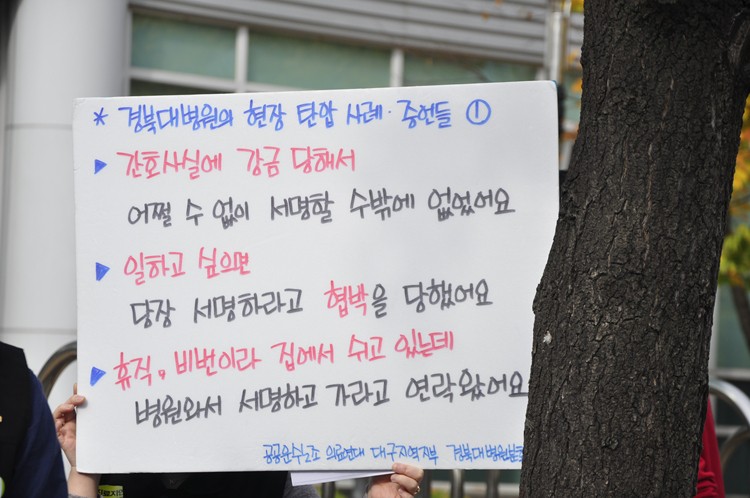 * 경북대병원의 현장 탄압 사례·증언들 ①
▶ 간호사실에 감금 당해서
어쩔 수 없이 서명할 수밖에 없었어요
▶ 일하고 싶으면
당장 서명하라고 협박을 당했어요
▶ 휴직, 비번이라 집에서 쉬고 있는데
병원와서 서명하고 가라고 연락왔어요
공공운수노조 의료연대 대구지역지부 경북대병원분회